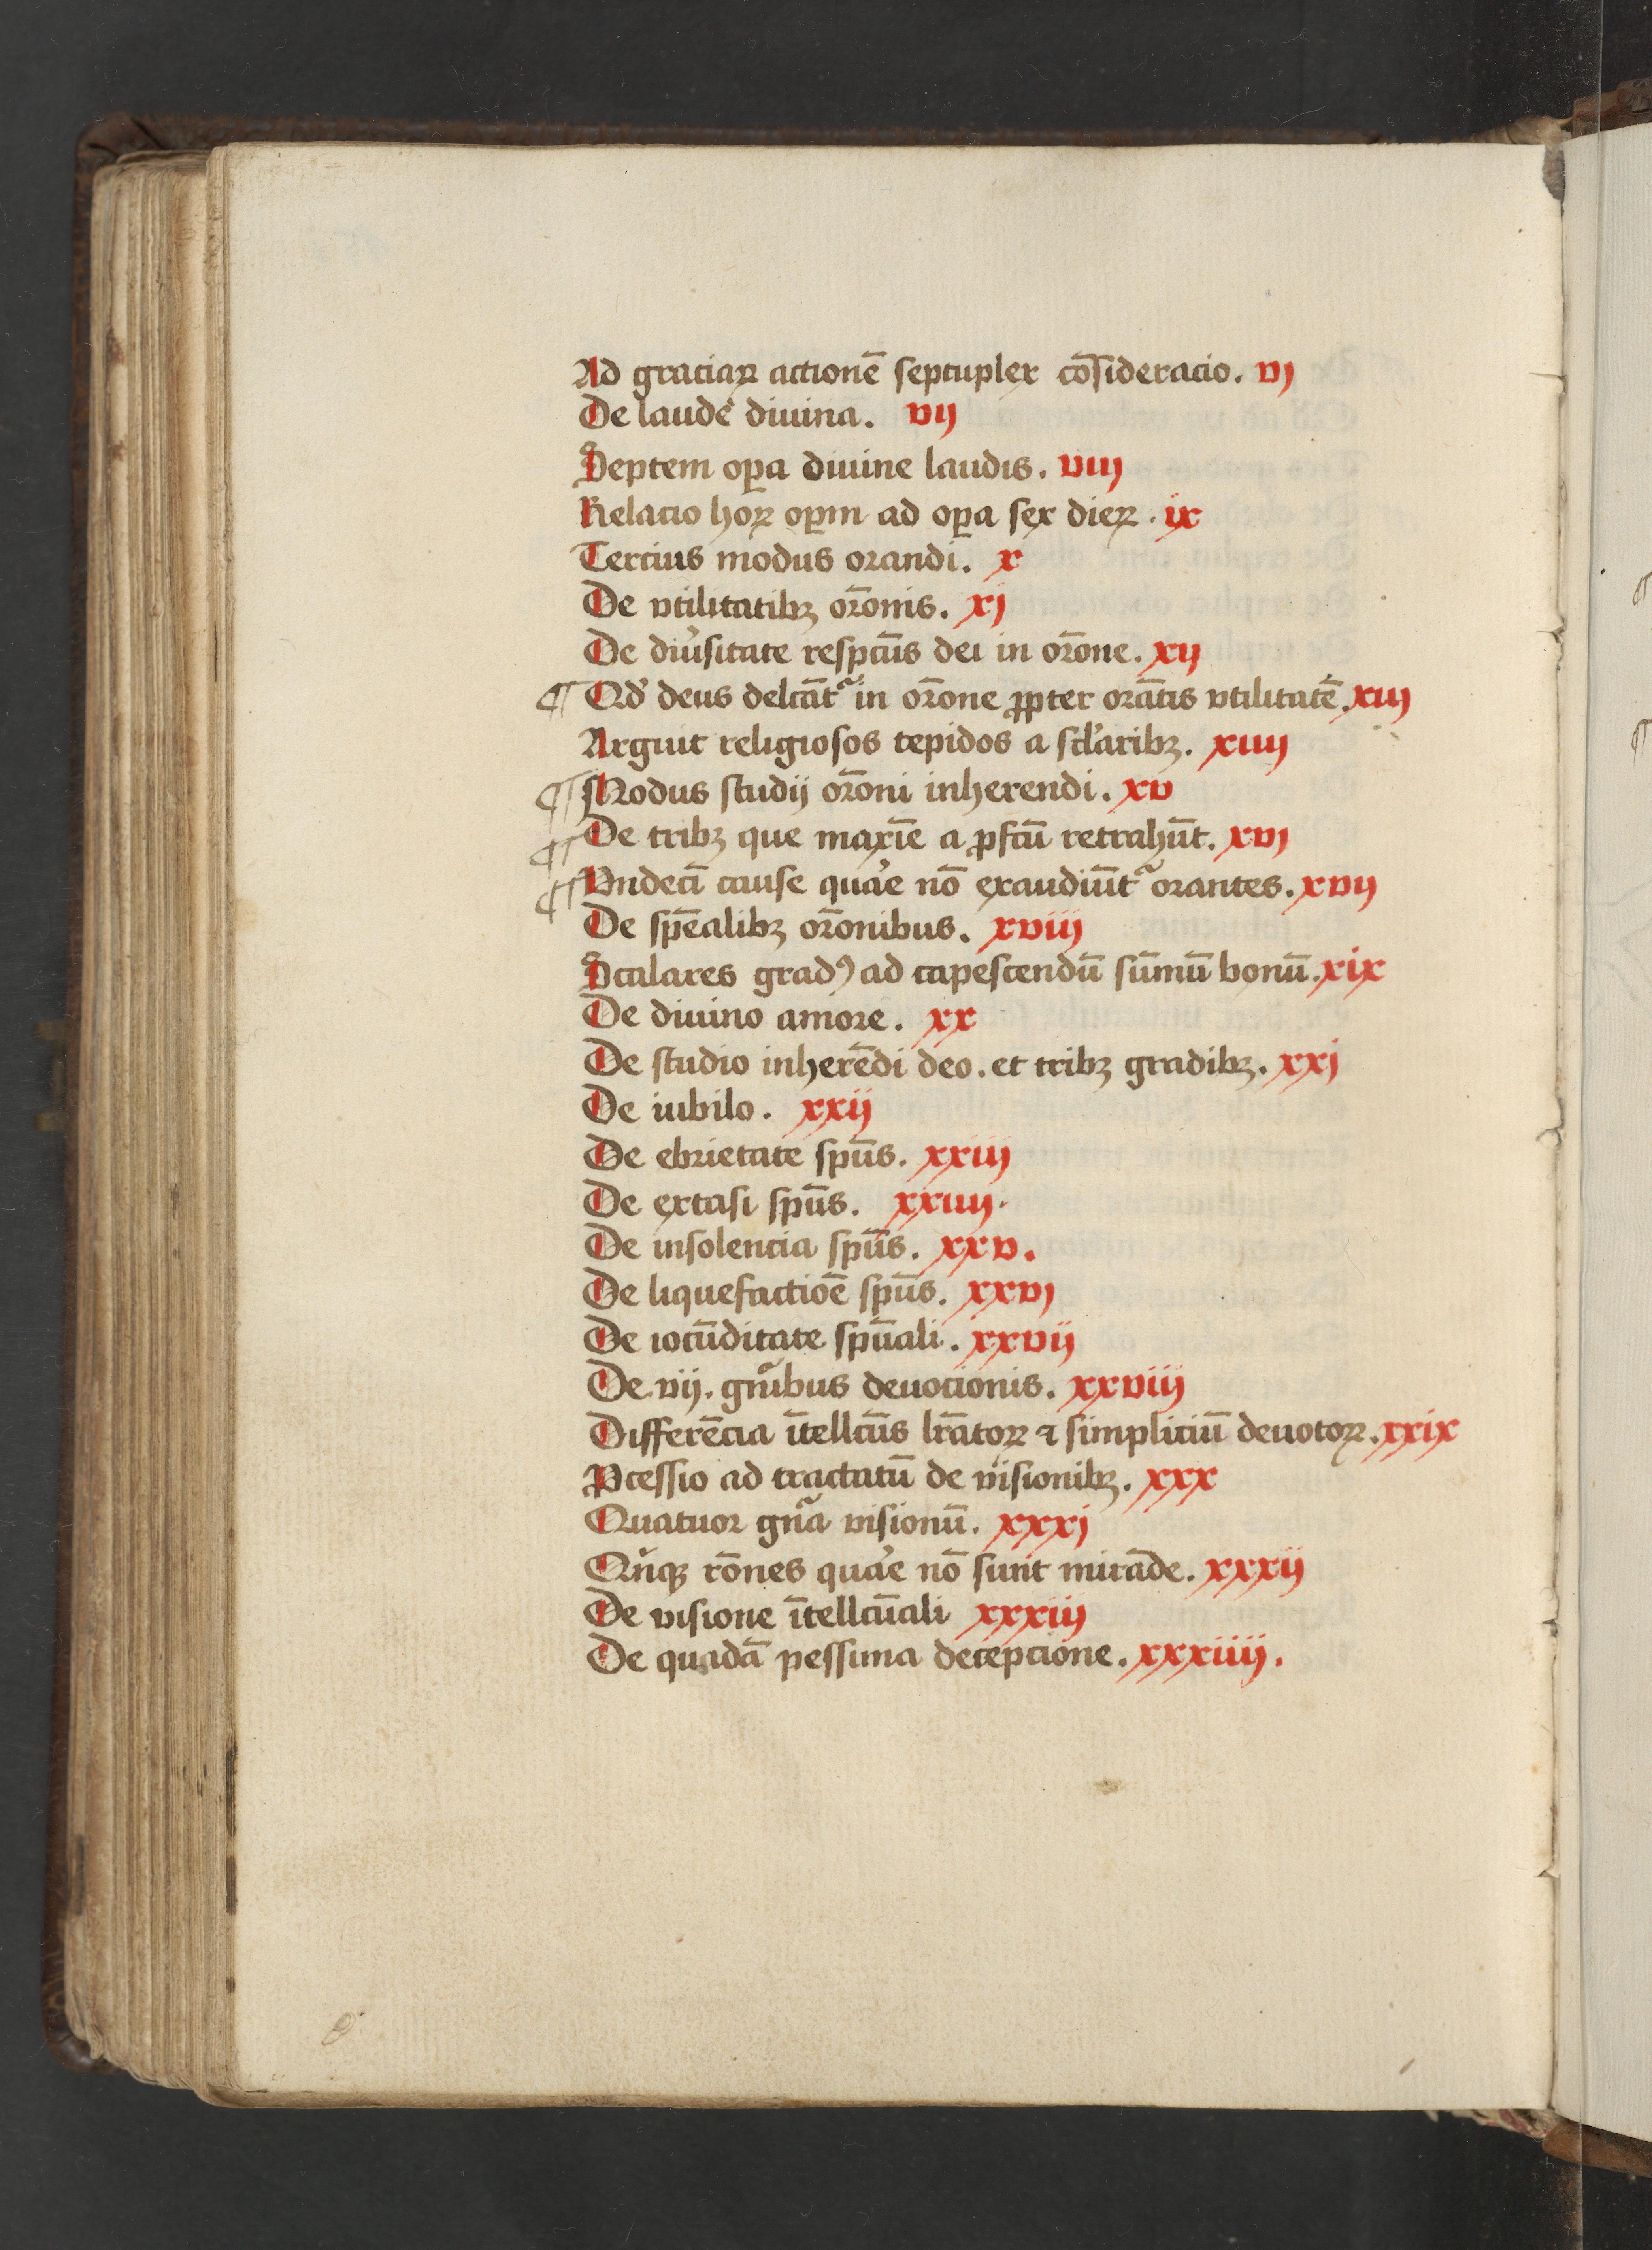 Ad graciaꝝ actionē septuplex cōsideracio. vj
De laude diuina. vij
Septem oꝑa diuine laudis. viij
Relacio hoꝝ oꝑm ad oꝑa sex dieꝝ. ix
Tercius modus orandi. x
De vtilitatibꝫ or̄onis. xj
De diu'sitate respc̄us dei in or̄one. xij
¶ Qd' deus delc̄atᷣ in or̄one ꝓpter orātis vtilitatē. xiij
Arguit religiosos tepidos a scl'aribꝫ. xiiij
¶ Modus studij or̄oni inherendi. xv
¶ De tribꝫ que maxīe a ꝓfc̄u retrahūt. xvj
¶ Vndecī cause qua'e nō exaudiūtᷣ orantes. xvij
De spēalibꝫ or̄onibus. xviij
Scalares gradꝰ ad capescendū sūmū bonū. xix
De diuino amore. xx
De studio inherēdi deo. et tribꝫ gradibꝫ. xxj
De iubilo. xxij
De ebrietate sp̄us. xxiij
De extasi sp̄us. xxiiij.
De insolencia sp̄us. xxv.
De liquefactiōe sp̄us. xxvj
De iocūditate sp̄uali. xxvij
De .vij. gn̄ibus deuocionis. xxviij
Differēcia ītellc̄us lr̄atoꝝ ⁊ simpliciū deuotoꝝ. xxix
Ꝓcessio ad tractatū de visionibꝫ. xxx
Quatuor gn̄a visionū. xxxj
Qͥnqꝫ rōnes qua'e nō sunt mirāde. xxxij
De visione ītellc̄uali xxxiij
De quadā pessima decepcione. xxxiiij.